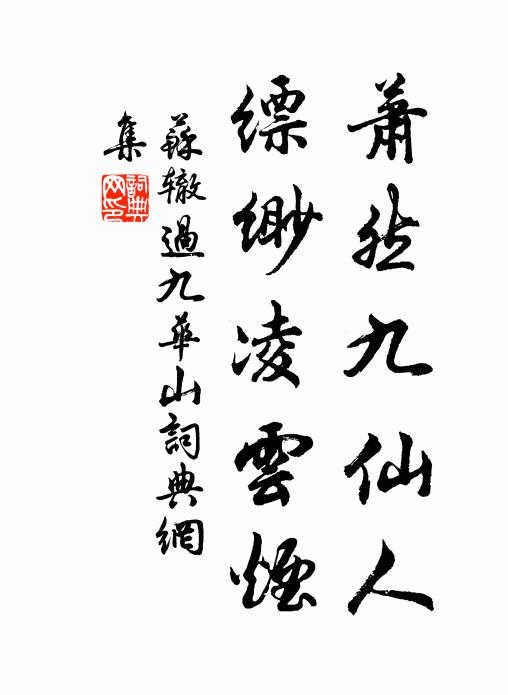 蕭然九仙人
縹緲凌雲煙
蘇辙過九華山詞典網
集
詞典网印